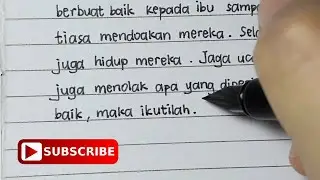 berbuat baik kepada ibu
tiasa mendoakan mereka.
juga hidup mereka. Jaga
juga menolak apa yang
baik, maka ikutilah.
SUBSCRIBE